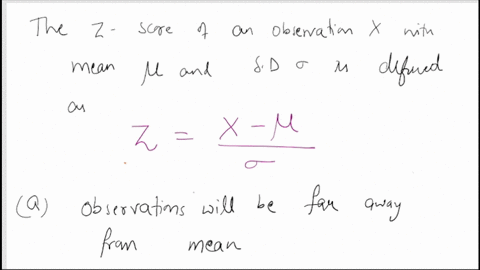 The Z-score of an observation X with
mean μ and S.D σ is defined
as
Z = X - μ / σ
(a) observations will be far away
from mean